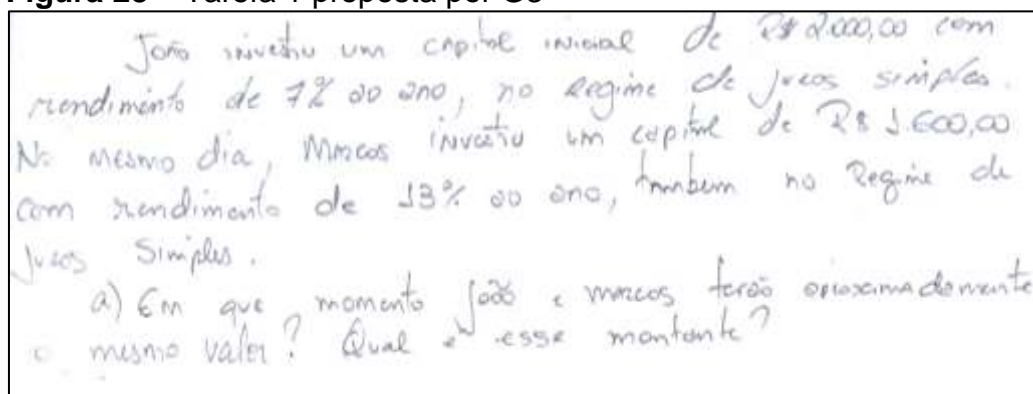 João investiu um capital inicial de R$ 2.000,00 com
rendimento de 7% ao ano, no Regime de juros simples.
No mesmo dia, Marcos investiu um capital de R$ 1.600,00
com rendimento de 13% ao ano, tambem no Regime de
juros Simples.
a) Em que momento João e marcos terão aproximadamente
o mesmo valor? Qual é esse montante?